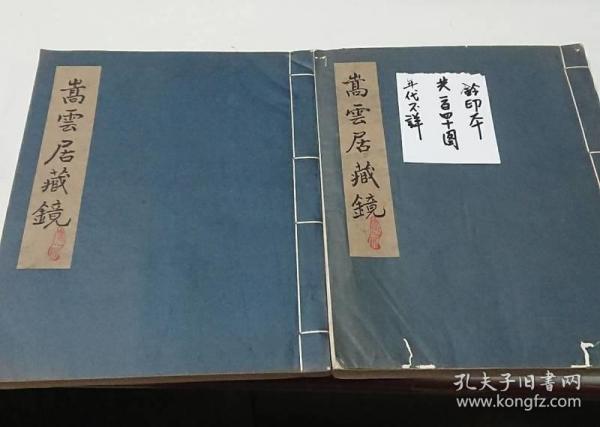 嵩雲居藏鏡
嵩雲居藏鏡
鈐印本
共一百四十图
年代不詳
孔夫子旧書网
www.kongfz.com